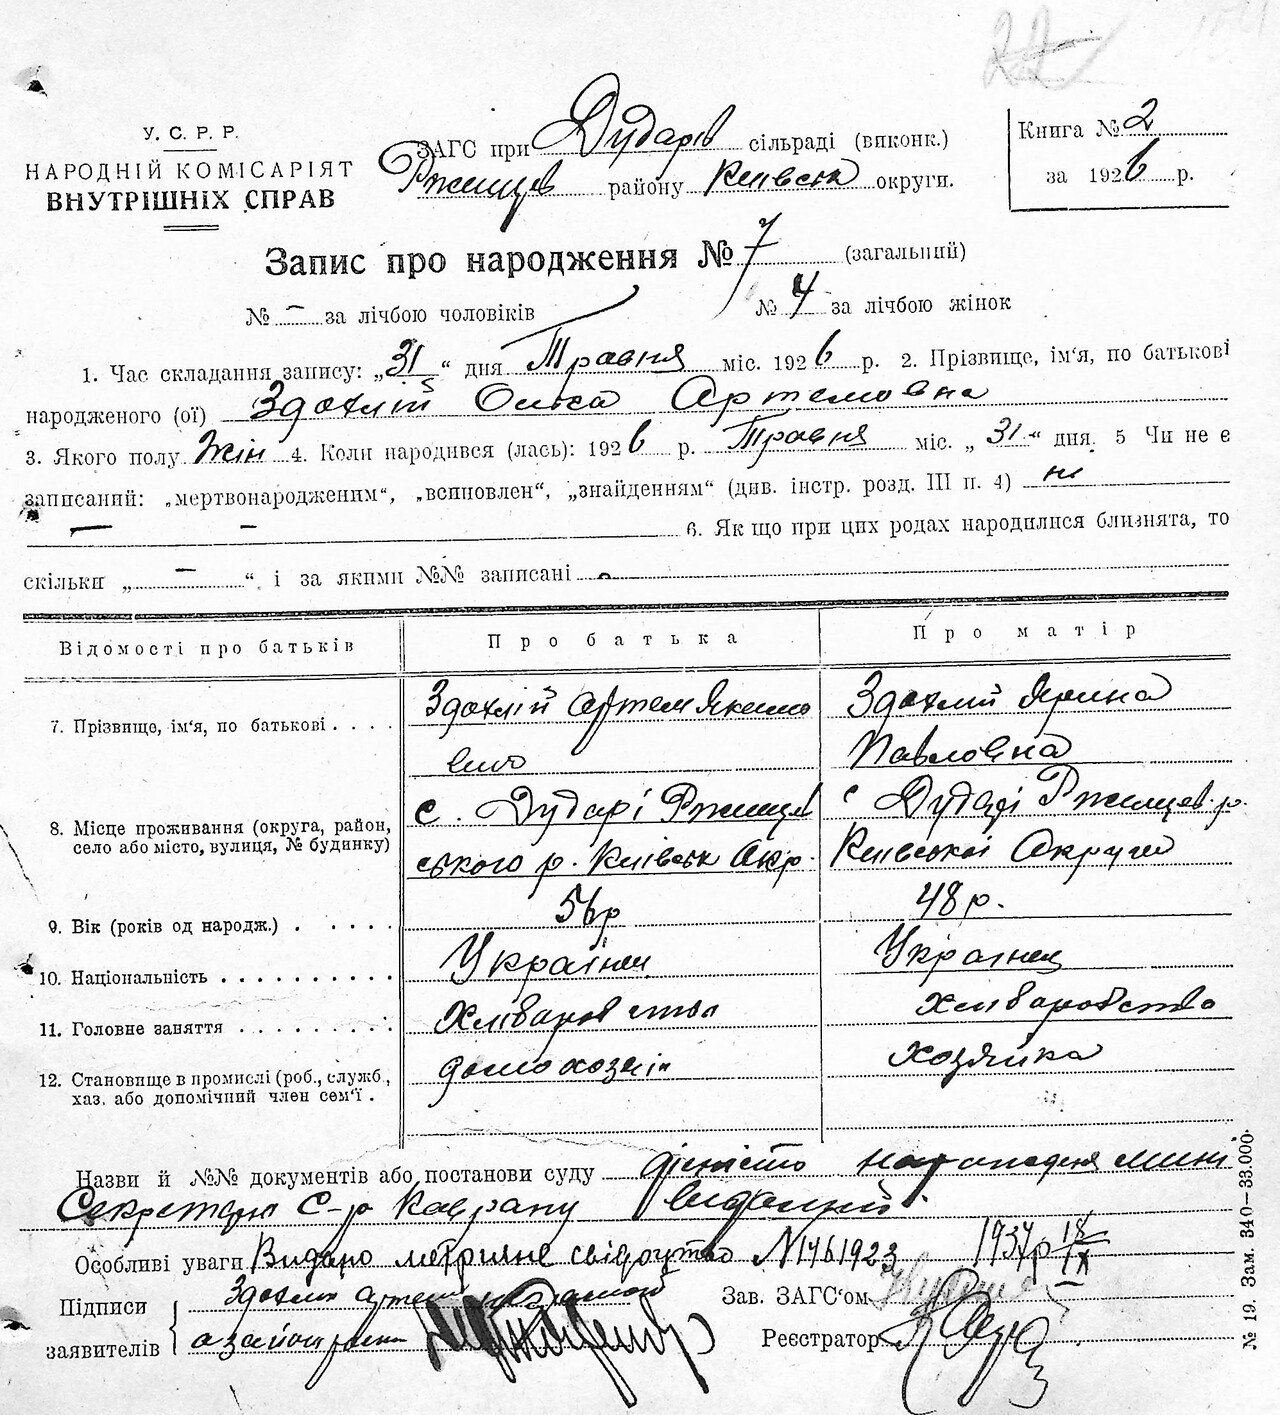 22
У. С. Р. Р.
НАРОДНІЙ КОМІСАРІЯТ
ВНУТРІШНІХ СПРАВ
ЗАГС при Дударів сільраді (виконк.)
Ржищев району Київська округи.
Книга № 2
за 1926 р.
Запис про народження № 7 (загальний)
№ – за лічбою чоловіків № 4 за лічбою жінок
1. Час складання запису: „31/5“ дня Травня міс. 1926 р. 2. Прізвище, ім‘я, по батькові
народженого (ої) Здохлій Ольга Артемовна
3. Якого полу Жін 4. Коли народився (лась): 1926 р. Травня міс. „31“ дня. 5 Чи не є
записаний: „мертвонародженим“, „всиновлен“, „знайденням“ (див. інстр. розд. III п. 4) ні
– – 6. Як що при цих родах народилися близнята, то
скільки „ – “ і за якими №№ записані
Відомості про батьків Про батька Про матір
7. Прізвище, ім‘я, по батькові . . . . Здохлій Артем Якимо Здохлій Ярина
вич Павловна
8. Місце проживання (округа, район, с. Дударі Ржищев с Дударі Ржищев. р.
село або місто, вулиця, № будинку) ського р. Київськ Окр. Київської Округи
9. Вік (років од народж.) . . . . . 56р 48 р.
10. Національність . . . . . . . . . . Українец Українец
11. Головне заняття . . . . . . . . . Хліборобство Хліборобство
12. Становище в промислі (роб., служб., домохозяін хозяйка
хаз. або допомічний член сем‘ї .
Назви й №№ документів або постанови суду
Секретарм С-р виданий
Особливі уваги Видано метричне свідоцтво №1461923 1937р 18/IX
Підписи Здохлій Артем
заявителів а за його
Зав. ЗАГС‘ом
Реєстратор
№ 19. Зам. 340—33.000.